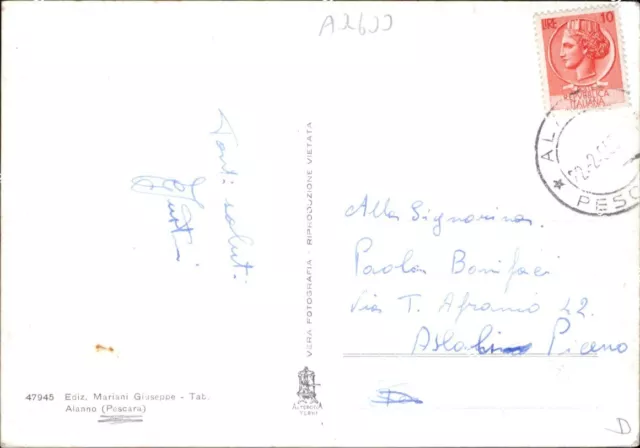 A2633
LIRE 10
REPVBBLICA
ITALIANA
PESC
Tanti saluti
VERA FOTOGRAFIA - RIPRODUZIONE VIETATA
Alla Signorina
Paola Bonifaci
Via T. Afranio 22.
Piceno
47945 Ediz. Mariani Giuseppe - Tab.
Alanno (Pescara)
ALTEROCCA
TERNI
D